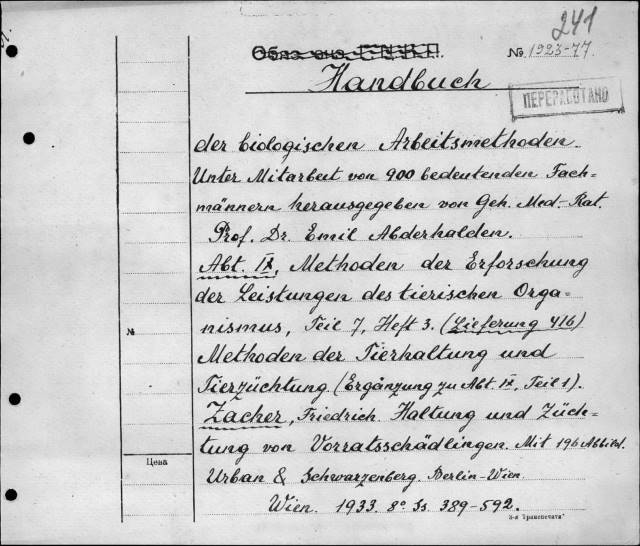 241
№ 1923-77.
Handbuch
ПЕРЕРАБОТАНО
der biologischen Arbeitsmethoden.
Unter Mitarbeit von 900 bedeutenden Fach-
männern herausgegeben von Geh. Med-Rat.
Prof. Dr. Emil Abderhalden.
Abt. IX, Methoden der Erforschung
der Leistungen des tierischen Orga-
nismus, Teil 7, Heft 3. (Lieferung 416)
№
Methoden der Tierhaltung und
Tierzüchtung (Ergänzung zu Abt. IX, Teil 1).
Zacher, Friedrich. Haltung und Züch-
tung von Vorratsschädlingen. Mit 196 Abbild.
Цена
Urban & Schwarzenberg. Berlin-Wien.
Wien. 1933. 8° Ss. 389-592.
3-я "Транспечати"